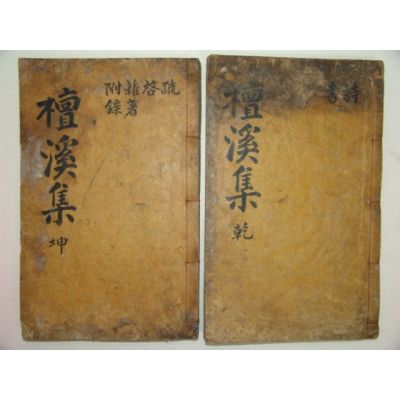 詩
書
檀溪集
乾
疏
啓
雜著
附錄
檀溪集
坤